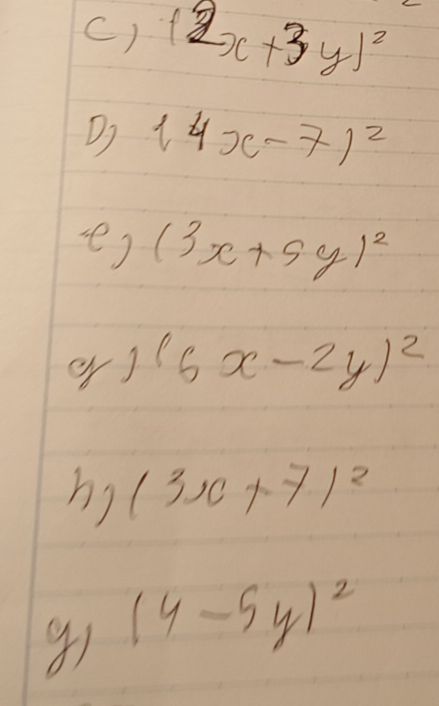 c) (2x+3y)²
D) (4x-7)²
e) (3x+5y)²
g) (6x-2y)²
h) (3x+7)²
y) (4-5y)²